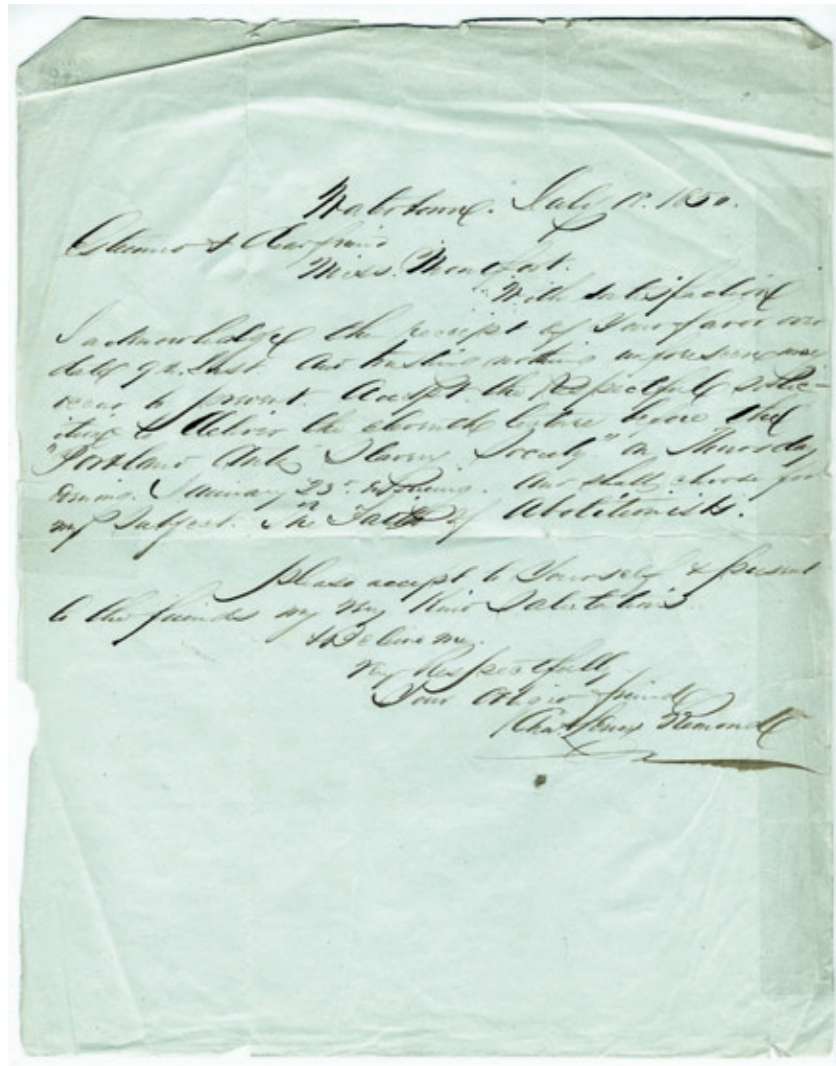 July 18. 1850.
Esteemed & Dear friend
Miss. Mountfort.
With satisfaction
I acknowledge the receipt of your favor over
date of 9th Inst. And trusting nothing unforeseen may
occur to prevent. Accept the respectful solic-
itude to deliver the eleventh lecture before the
"Portland Anti Slavery Society" on Thursday
Evening. January 23d. And shall choose for
my Subject. The Faith of Abolitionists.
Please accept to Yourself & present
to the friends my very kind Salutations.
Believe me.
Very Respectfully
Your Obliged friend
Chas Lenox Remond